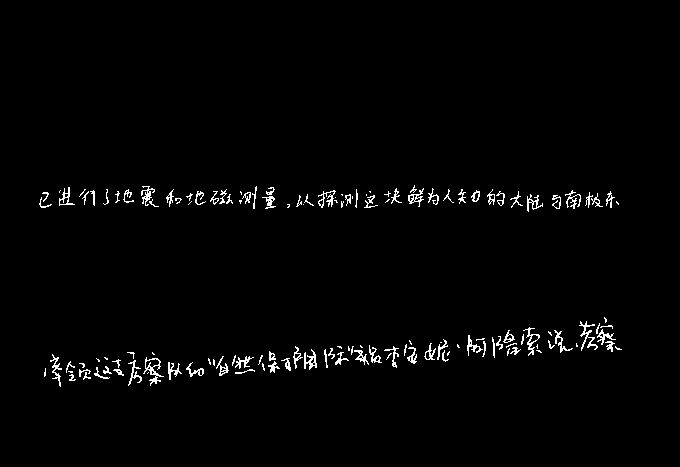 已进行了地震和地磁测量,以探测这块鲜为人知的大陆与南极东
率领这支考察队的“自然保护国际”组织李安妮·阿隆索说,考察